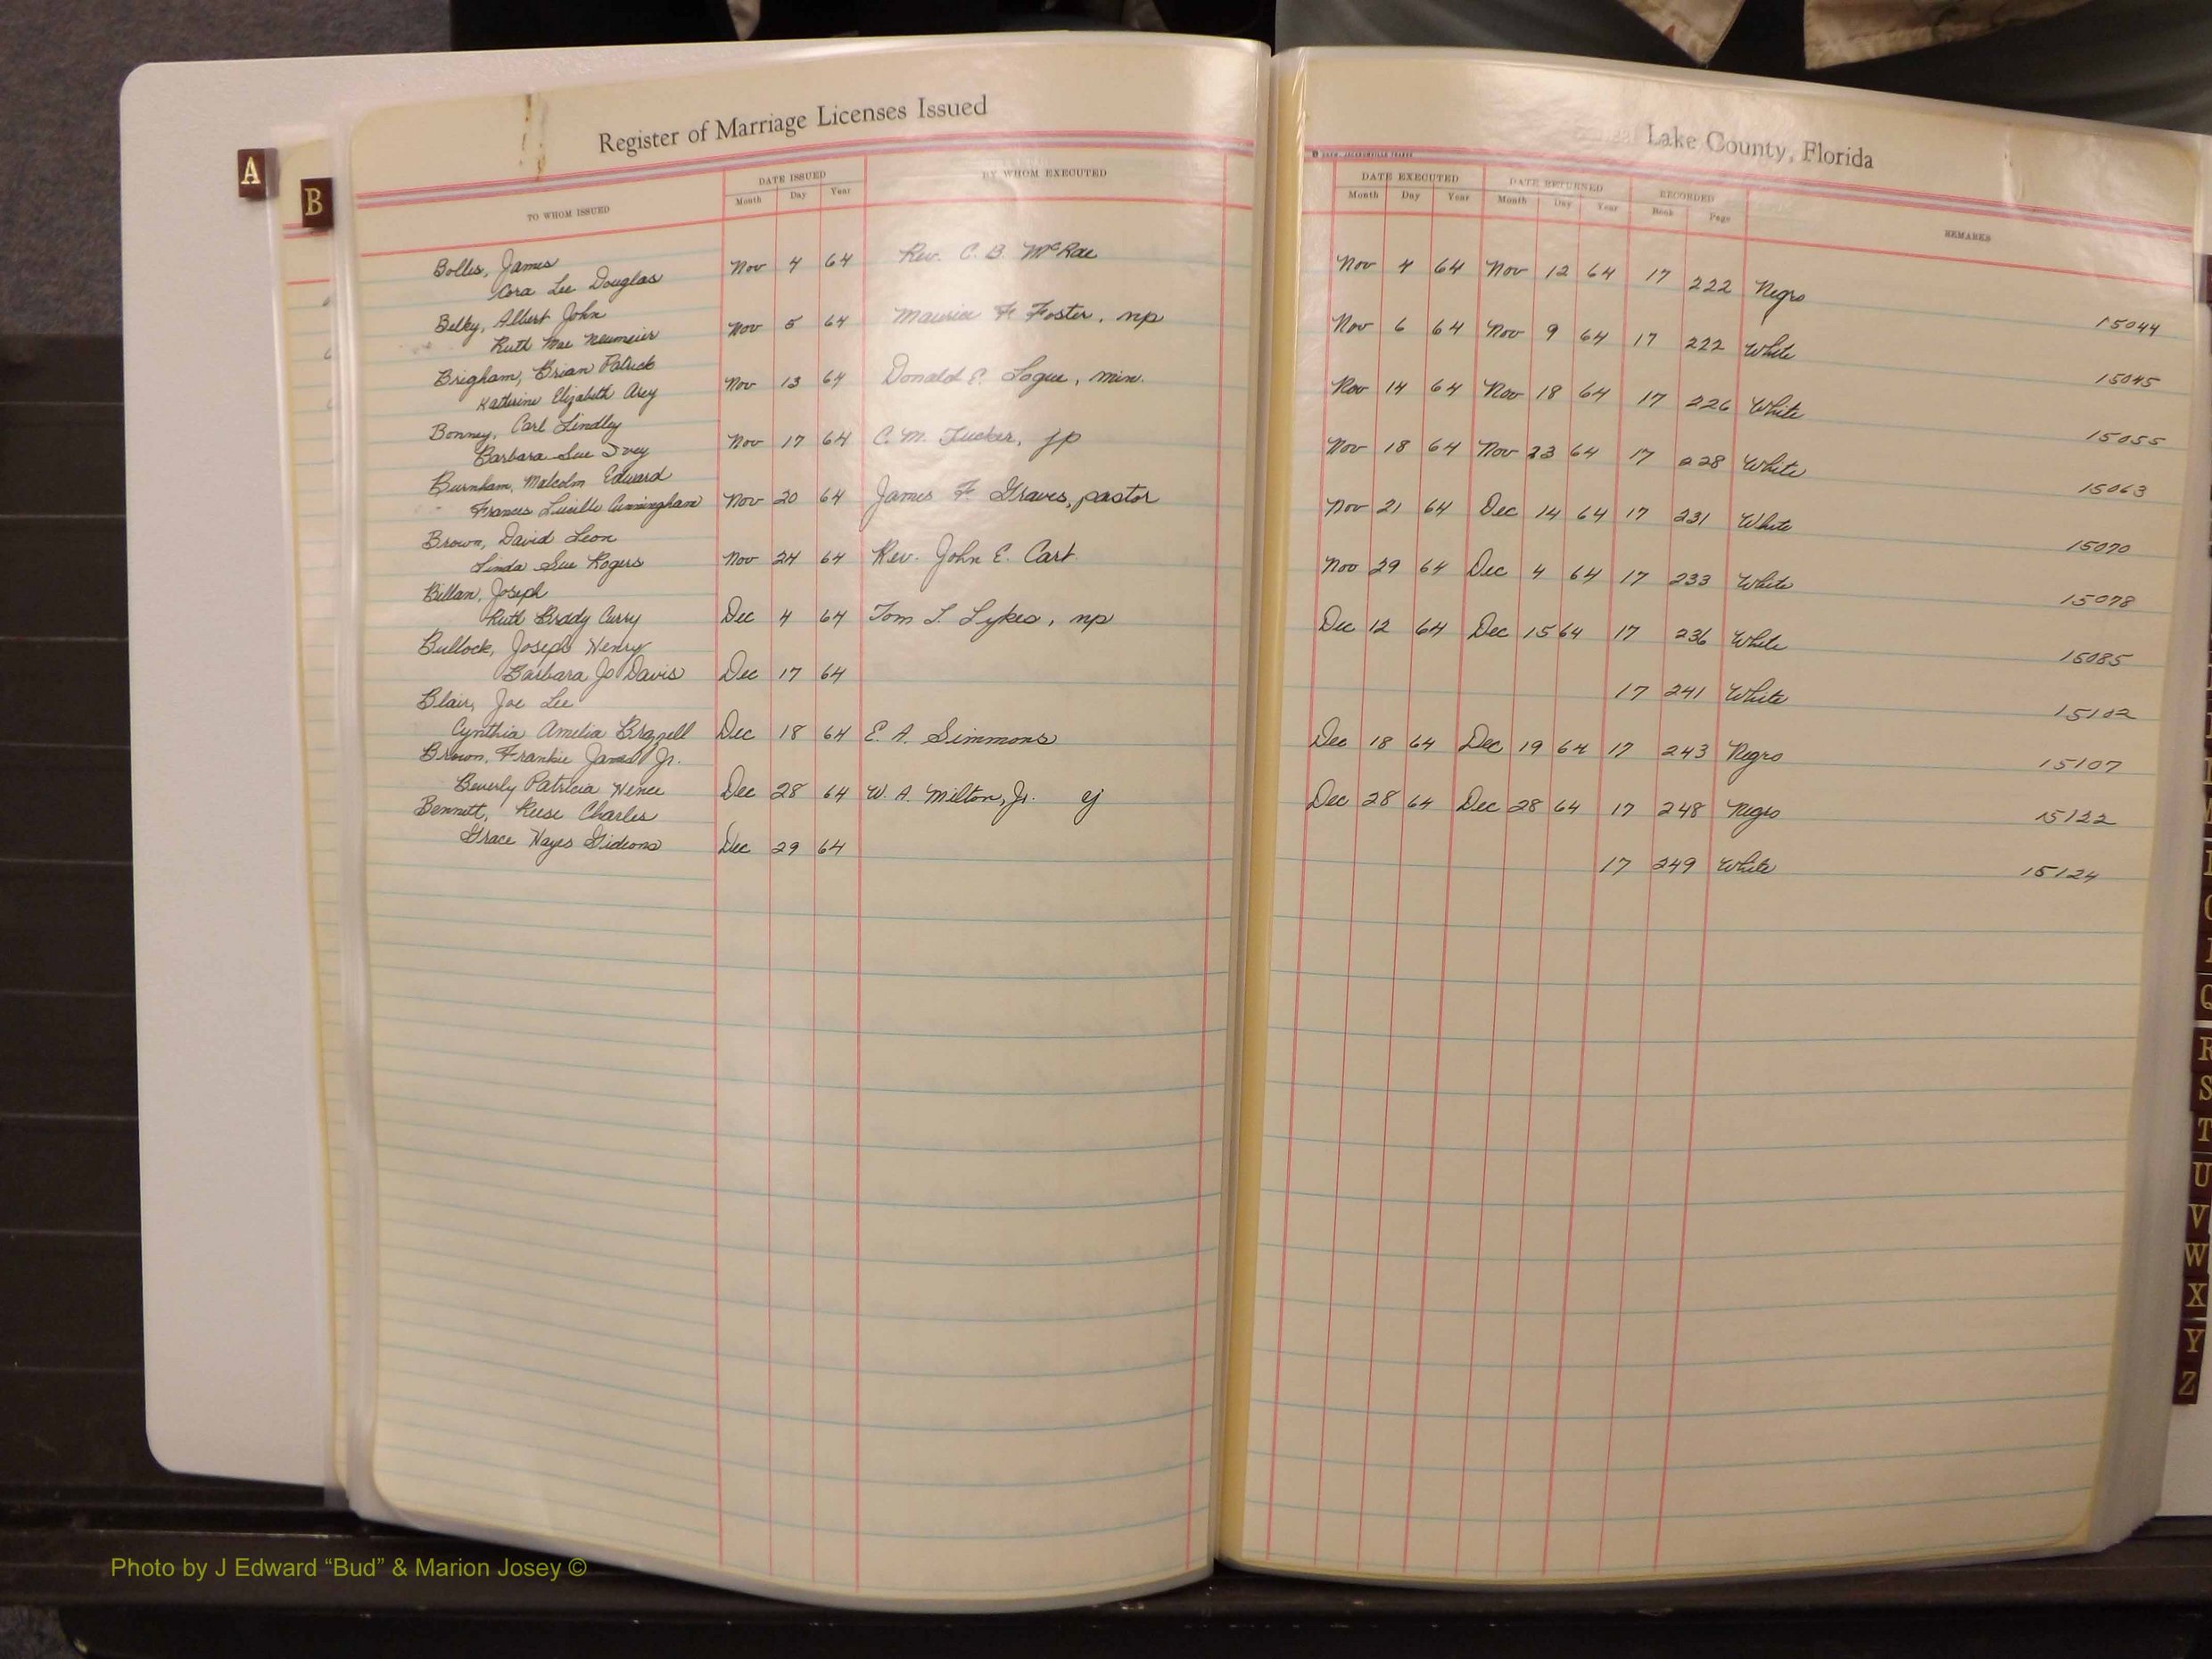 Register of Marriage Licenses Issued
Lake County, Florida
A
B
TO WHOM ISSUED
DATE ISSUED
Month Day Year
BY WHOM EXECUTED
DATE EXECUTED
Month Day Year
DATE RETURNED
Month Day Year
RECORDED
Book Page
REMARKS
Bolles, James
Cora Lee Douglas Nov 4 64 Rev. C. B. McRae Nov 4 64 Nov 12 64 17 222 Negro 15044
Belky, Albert John
Ruth Mae Neumeier Nov 5 64 Maurice F. Foster, np Nov 6 64 Nov 9 64 17 222 White 15045
Brigham, Brian Patrick
Katherine Elizabeth Arey Nov 13 64 Donald E. Logue, min. Nov 14 64 Nov 18 64 17 226 White 15055
Bonney, Carl Lindley
Barbara Sue Ivey Nov 17 64 C. M. Tucker, jp Nov 18 64 Nov 23 64 17 228 White 15063
Burnham, Malcolm Edward
Frances Lucille Cunningham Nov 20 64 James F. Graves, pastor Nov 21 64 Dec 14 64 17 231 White 15070
Brown, David Leon
Linda Sue Rogers Nov 24 64 Rev. John E. Cart Nov 29 64 Dec 4 64 17 233 White 15078
Billan, Joseph
Ruth Brady Curry Dec 4 64 Tom L. Lykes, np Dec 12 64 Dec 15 64 17 236 White 15085
Bullock, Joseph Henry
Barbara Jo Davis Dec 17 64 17 241 White 15102
Blair, Joe Lee
Cynthia Amelia Brazzell Dec 18 64 E. A. Simmons Dec 18 64 Dec 19 64 17 243 Negro 15107
Brown, Frankie James Jr.
Beverly Patricia Hence Dec 28 64 W. A. Milton, Jr. cj Dec 28 64 Dec 28 64 17 248 Negro 15122
Bennett, Reese Charles
Grace Hayes Gideons Dec 29 64 17 249 White 15124
Q
R
S
T
U
V
W
X
Y
Z
Photo by J Edward “Bud” & Marion Josey ©